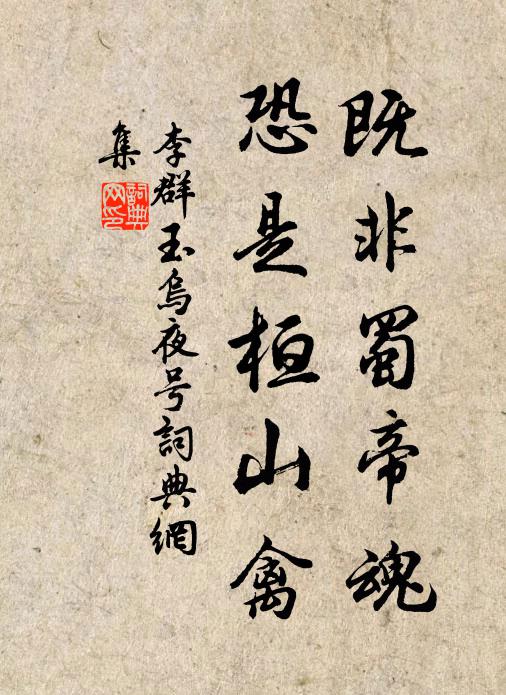 既非蜀帝魂
恐是桓山禽
李群玉烏夜号詞典網
集
詞典
网印